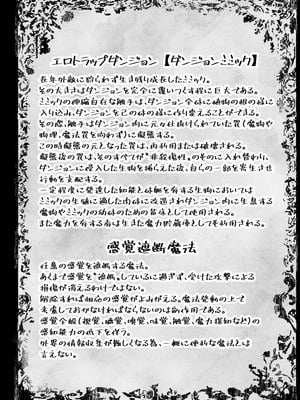 エロトラップダンジョン【ダンジョンミミック】
長年外敵に狩られず生き残り成長したミミック。
その大きさはダンジョンを完全に覆いつくす程に巨大である。
ミミックの伸縮自在な触手は、ダンジョン全域に植物の根の様に
入り込み、ダンジョンを己の体の様に作り変えることができる。
その際、触手はダンジョン内に元々仕掛けられていた罠(魔物や
物理、魔法罠を問わず)に擬態する。
この時擬態の元となった罠は、再利用または破壊される。
擬態後の罠は、そのすべてが"非殺傷性"のそれに入れ替わり、
ダンジョンに侵入した生物を捕らえた後、自らの一部を寄生させ
行動を支配する。
一定程度に発達した知能と体躯を有する生物においては
ミミックの生殖に適した肉体に改造されダンジョン内に生息する
魔物やミミックの幼体のための苗床として使用される。
また魔力を有する者は生きた魔力貯蔵庫としても利用される。
感覚遮断魔法
任意の感覚を遮断する魔法。
あくまで感覚を"遮断"しているに過ぎず、受けた攻撃による
損傷が消えるわけではない。
解除すれば相応の感覚がよみがえる。魔法発動の上で
考慮しておかなければならないのは副作用である。
感覚全般(視覚、聴覚、嗅覚、味覚、触覚、魔力探知など)の
感知能力の低下を伴う。
外界の情報収集が難しくなる為、一概に便利な魔法とは
言えない。